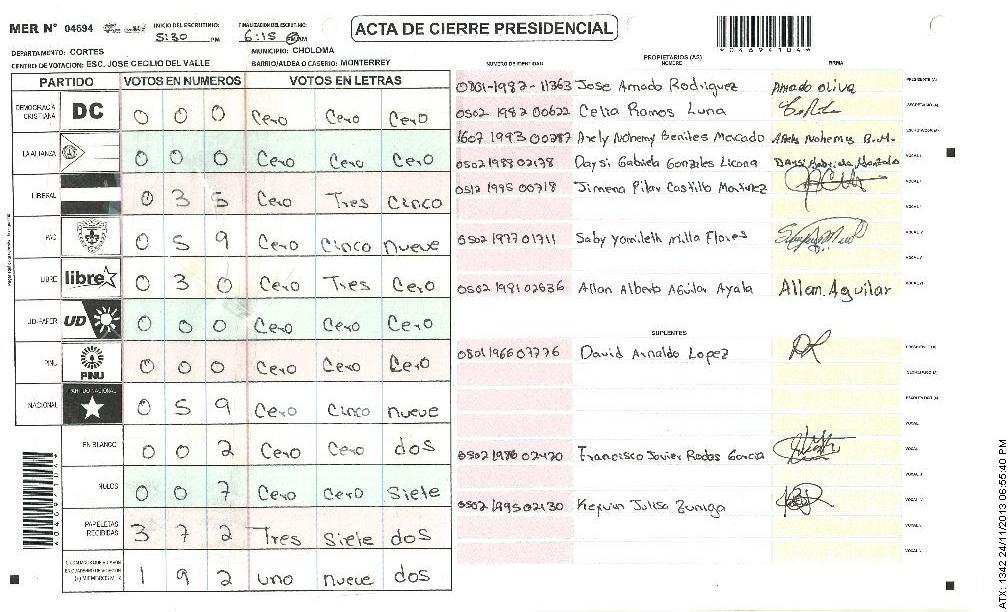 MER N° 04694 INICIO DEL ESCRUTINIO: 5:30 PM FINALIZACION DEL ESCRUTINIO: 6:15 PM
ACTA DE CIERRE PRESIDENCIAL
DEPARTAMENTO: CORTES MUNICIPIO: CHOLOMA
CENTRO DE VOTACION: ESC. JOSE CECILIO DEL VALLE BARRIO/ALDEA O CASERIO: MONTERREY
PARTIDO VOTOS EN NUMEROS VOTOS EN LETRAS
DEMOCRACIA CRISTIANA DC 0 0 0 Cero Cero Cero
LA ALIANZA 0 0 0 Cero Cero Cero
LIBERAL 0 3 5 Cero Tres Cinco
PAC 0 5 9 Cero Cinco nueve
LIBRE libre 0 3 0 Cero Tres Cero
UD-FAPER UD 0 0 0 Cero Cero Cero
PINU PINU 0 0 0 Cero Cero Cero
NACIONAL PARTIDO NACIONAL 0 5 9 Cero Cinco nueve
EN BLANCO 0 0 2 Cero Cero dos
NULOS 0 0 7 Cero Cero Siete
PAPELETAS RECIBIDAS 3 7 2 Tres Siete dos
1 9 2 uno nueve dos
PROPIETARIOS (AS)
NUMERO DE IDENTIDAD NOMBRE FIRMA
0801-1987-11363 Jose Amado Rodriguez Amado Oliva
0502 1982 00622 Celia Ramos Luna
1607 1993 00287 Arely Nohemy Benites Mercado Arely Nohemy B.M.
0502 1988 02178 Daysi Gabriela Gonzales Licona Daysi Gabriela Gonzales
0512 1995 00718 Jimena Pilar Castillo Martinez
0502 1977 01711 Saby Yomileth Milla Flores
0502 1991 02636 Allan Alberto Aguilar Ayala Allan Aguilar
SUPLENTES
0801 1966 07776 David Arnaldo Lopez
0502 1986 02420 Francisco Javier Rodas Garcia
0502 1995 02130 Kevin Julisa Zuniga
ATX: 1342 24/11/2013 06:55:40 PM